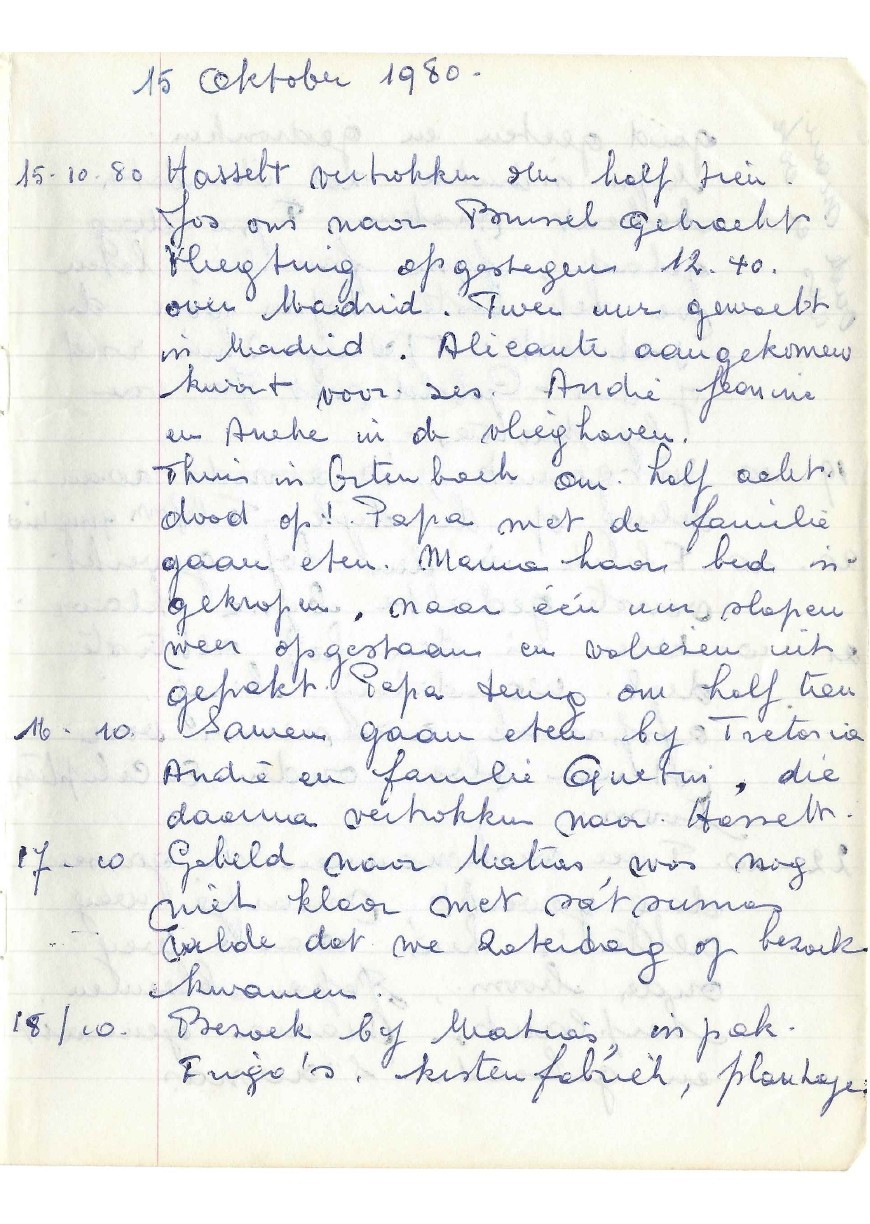 15 Oktober 1980.
15-10-80 Hasselt vertrokken om half tien.
Jos ons naar Brussel gebracht
Vliegtuig opgestegen 12.40.
over Madrid. Twee uur gewacht
in Madrid. Alicante aangekomen
kwart voor zes. André Jeannine
en Aneke in de vlieghaven.
Thuis in Ortenbach om half acht.
dood op! Papa met de familie
gaan eten. Mama haar bed in
gekropen, naar één uur slapen
weer opgestaan en valiezen uit
gepakt. Papa terug om half tien
16-10. Samen gaan eten by
André en familie, die
daarna vertrokken naar Hasselt.
17-10 Gebeld naar Matias, was nog
niet klaar met satsumas
wilde dat we Zaterdag op bezoek
kwamen.
18/10. Bezoek by Matias, inpak.
Frigo's. kistenfabriek, plantage